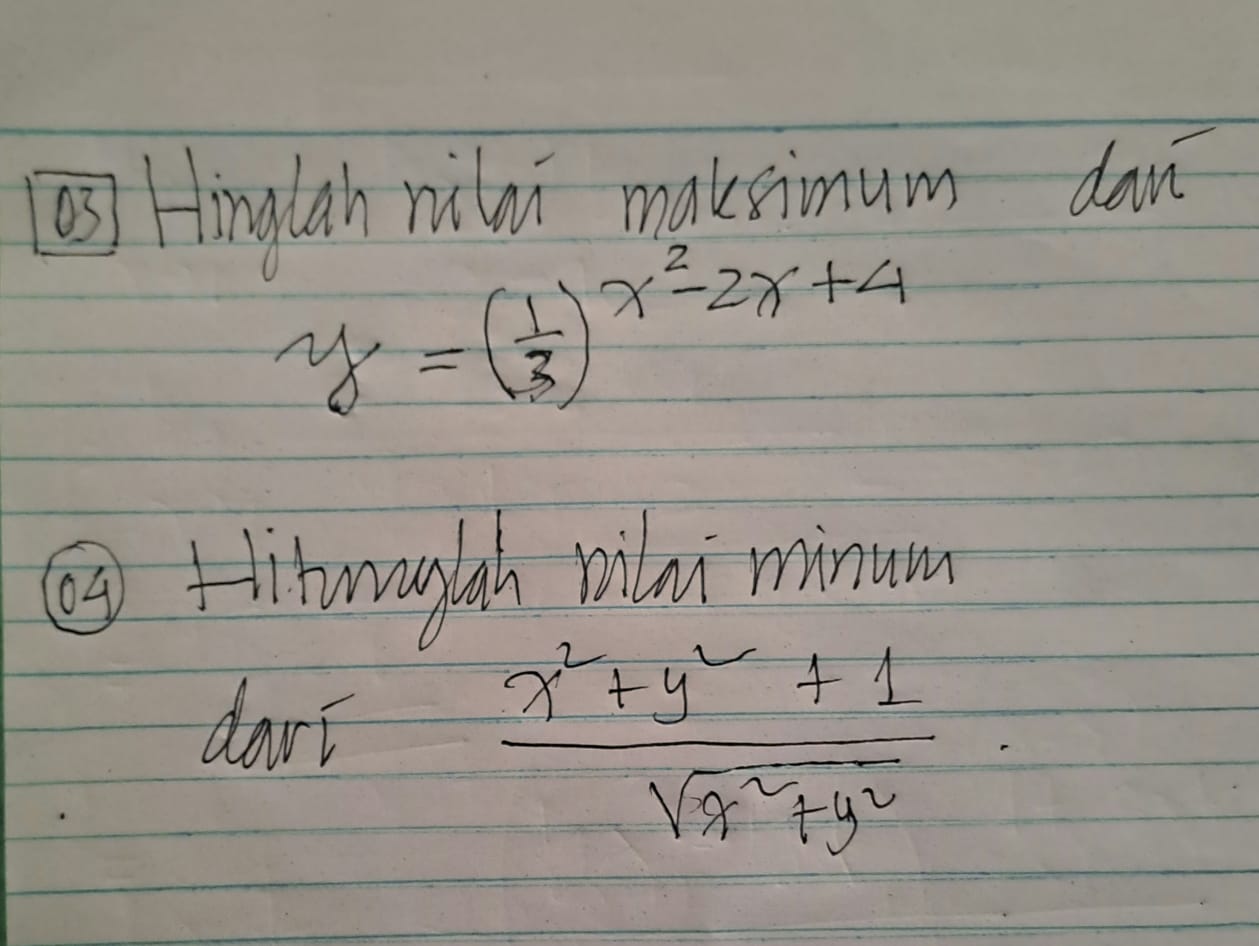 03 Hinglah nilai maksimum dari
y = (1/3)^(x²-2x+4)
04 Hitunglah nilai minum
dari (x²+y²+1)/√(x²+y²) .